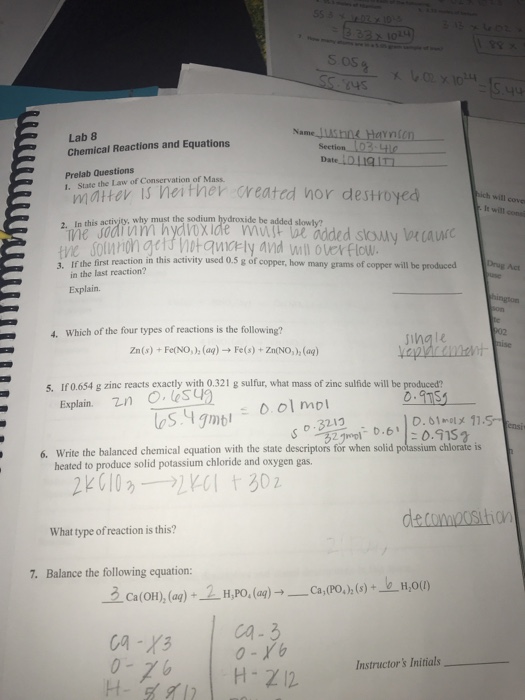 = 3.33 x 10²⁴
5.05g
55.845
x 6.02 x 10²⁴ = 5.44
Lab 8
Chemical Reactions and Equations
Name
Section 103-46
Date 10/19/17
Prelab Questions
1. State the Law of Conservation of Mass.
matter is neither created nor destroyed
2. In this activity, why must the sodium hydroxide be added slowly?
The sodium hydroxide must be added slowly because
the solution gets hot quickly and will overflow.
3. If the first reaction in this activity used 0.5 g of copper, how many grams of copper will be produced
in the last reaction?
Explain.
4. Which of the four types of reactions is the following?
single
replacement
Zn(s) + Fe(NO₃)₂ (aq) → Fe(s) + Zn(NO₃)₂ (aq)
5. If 0.654 g zinc reacts exactly with 0.321 g sulfur, what mass of zinc sulfide will be produced?
0.975g
Explain.
Zn 0.654g
65.4 gmol = 0.01 mol
S 0.321g
32 gmol = 0.01
0.01 mol x 97.5
= 0.975g
6. Write the balanced chemical equation with the state descriptors for when solid potassium chlorate is
heated to produce solid potassium chloride and oxygen gas.
2KClO3 → 2KCl + 3O2
decomposition
What type of reaction is this?
7. Balance the following equation:
3 Ca(OH)₂ (aq) + 2 H₃PO₄ (aq) → Ca₃(PO₄)₂ (s) + 6 H₂O(l)
Ca - 3
O - 6
H - 12
Ca - 3
O - 6
H - 12
Instructor's Initials